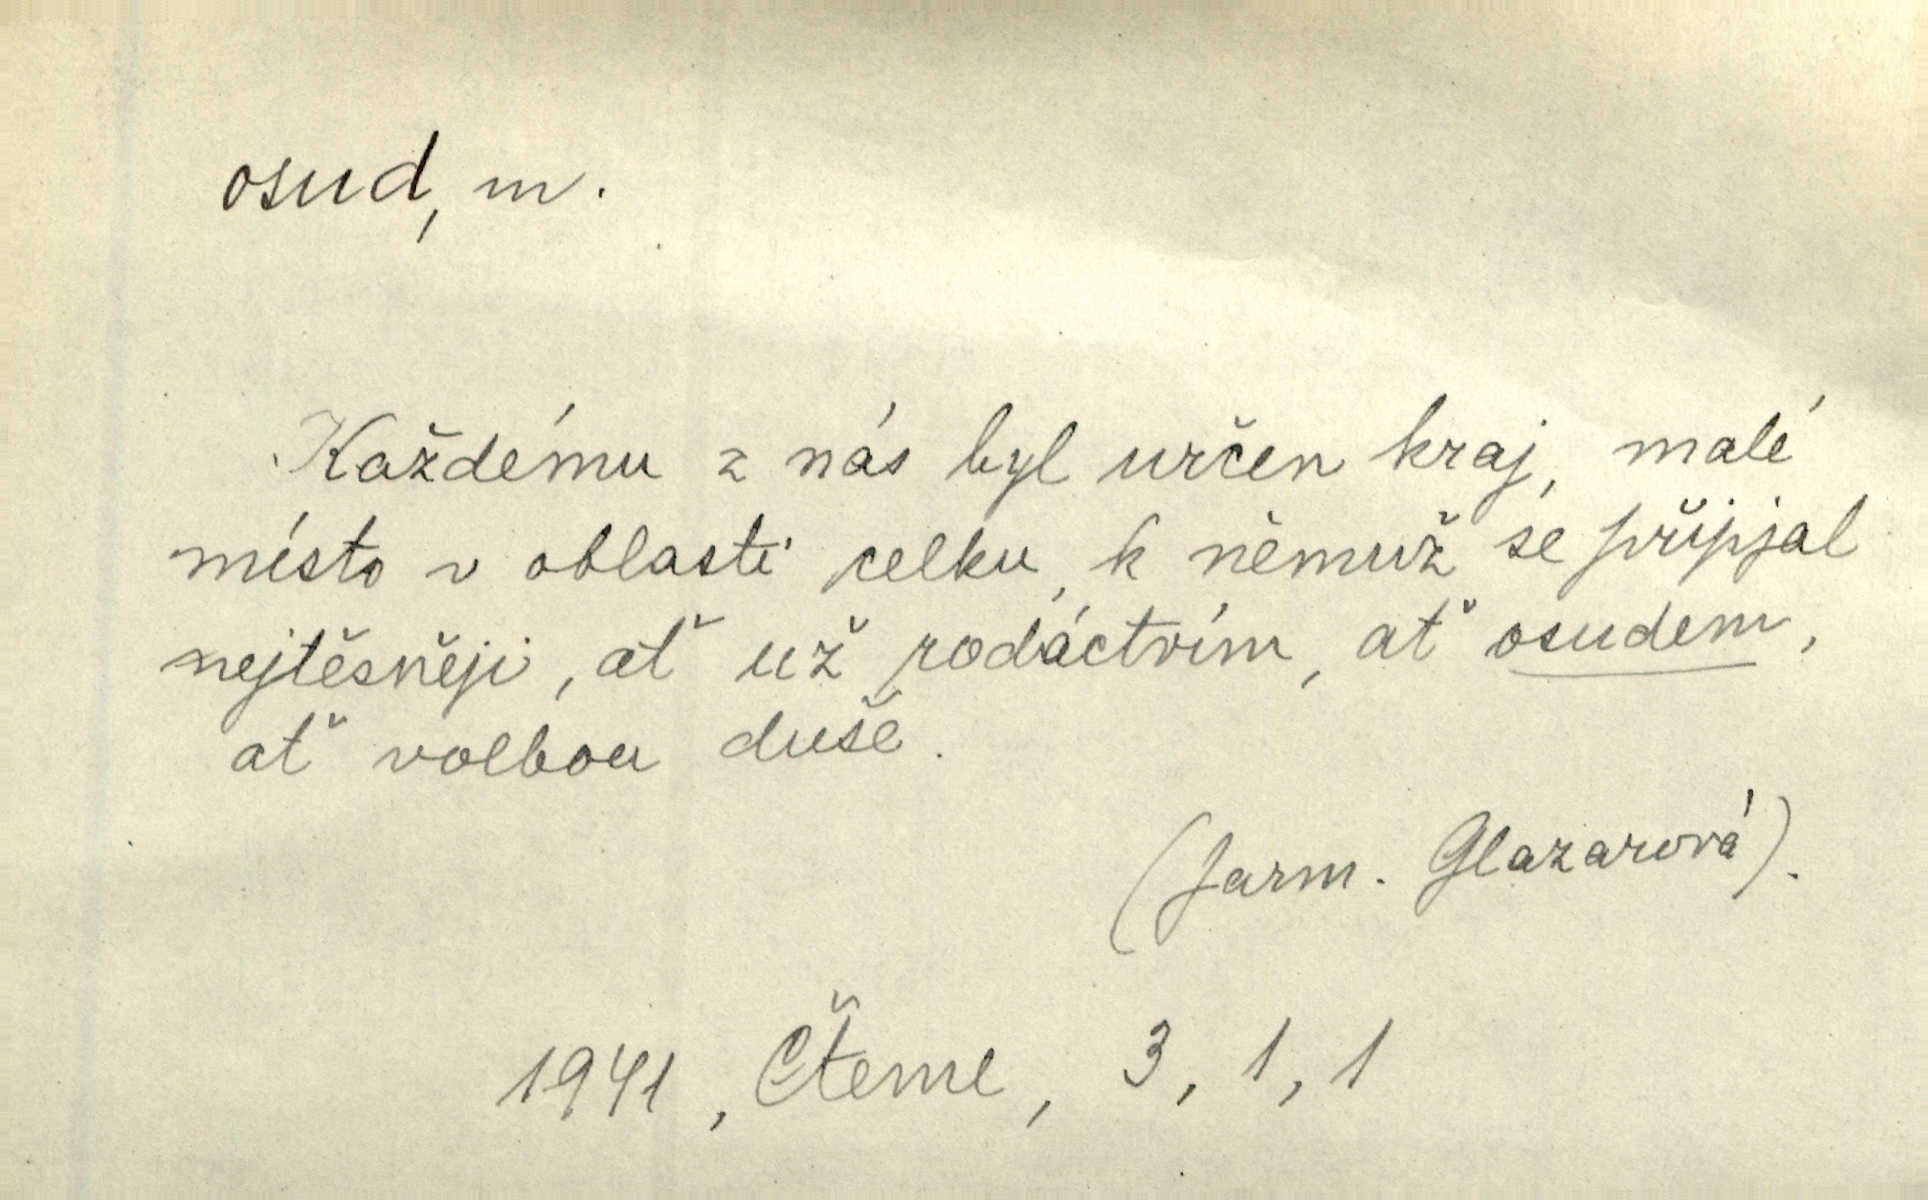 osud, m.
Každému z nás byl určen kraj, malé
místo v oblasti celku, k němuž se připjal
nejtěsněji, ať už rodáctvím, ať osudem,
ať volbou duše.
(Jarm. Glazarová).
1941, Čteme, 3, 1, 1